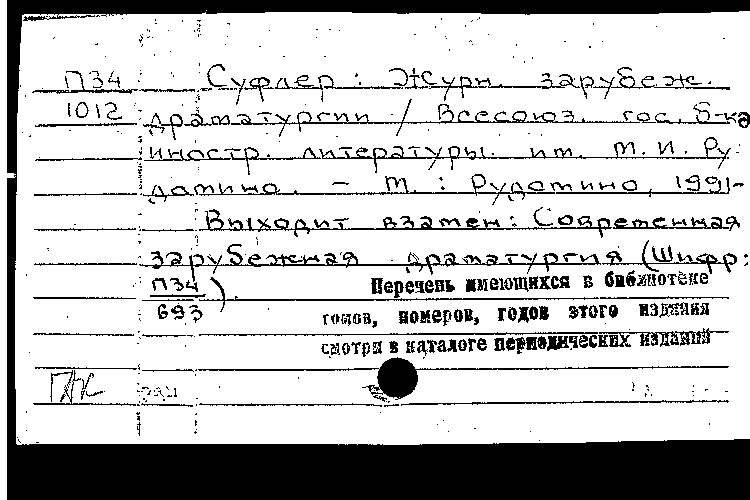 П34 Суфлер : Журн. зарубеж.
1012 драматургии / Всесоюз. гос. б-ка
иностр. литературы. им. М. И. Ру-
домино. – М. : Рудомино, 1991-
Выходит взамен: Современная
зарубежная драматургия (Шифр:
П34
693 ).
Перечень имеющихся в библиотеке
томов, номеров, годов этого издания
смотри в каталоге периодических изданий